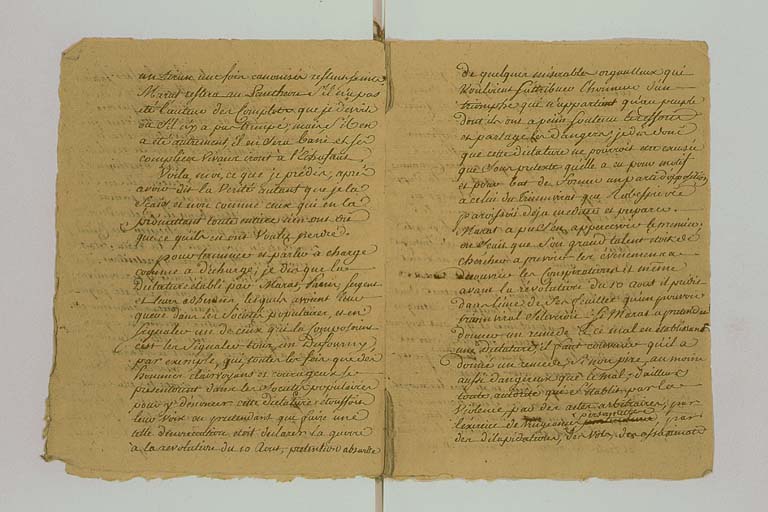 une fois canonisée
Marat restera au Pantheon s'il n'a pas
été l'auteur des complots que je décris
ou s'il n'y a pas trempé; mais s'il en
a été autrement, il en sera bani et ses
complices vivans iront à l'Echafaut.
Voila, moi, ce que je prédis, après
avoir dit la Verité autant que je la
scais et non comme ceux qui en la
promettant toute entiere n'en ont dit
que ce qu'ils en ont voulu
pour terminer et parler à charge
comme à décharge, je dis que la
Dictature etabli par Marat, Panis, Sergent
et leurs adherens, lesquels avoient leur
queue dans les Societés populaires, et en
signaler un de ceux qui la composoient
c'est les signaler tous, un Dufourny,
par exemple, qui toutes les fois que des
hommes clairvoyans et courageux se
presentoient dans les Societés populaires
pour y dénoncer cette dictature etouffoit
leur voix en pretendant que faire une
telle denonciation etoit declarer la guerre
a la revolution du 10 Aout, pretention absurde
de quelques miserables orgueilleux qui
vouloient s'attribuer l'honneur d'un
triomphe qui n'appartient qu'au peuple
dont ils ont a peine soutenu
et partagé les dangers; je dis donc
que cette dictature ne pourroit etre excusée
que sous pretexte qu'elle a eu pour motif
et pour but de former un parti d'opposition
a celui du triumvirat que Robespierre
paroissoit déja mediter et preparer.
Marat a pu s'en appercevoir le premier,
on scait que son grand talent etoit de
chercher a prevoir les évenemens a
decouvrir les conspirations et meme
avant la révolution du 10 aout il predit
dans l'une de ses feuilles qu'un pouvoir
triumviral s'éleveroit. Si Marat a pretendu
donner un remede à ce mal en établissant
une Dictature, il faut convenir qu'il a
donné un remede, si non pire, au moins
aussi dangereux que le mal; d'ailleurs
toute autorité qui s'établit par la
violence, par des actes arbitraires, par
l'exercice de vengeances personnelles, par
des dilapidations, des vols, des assassinats